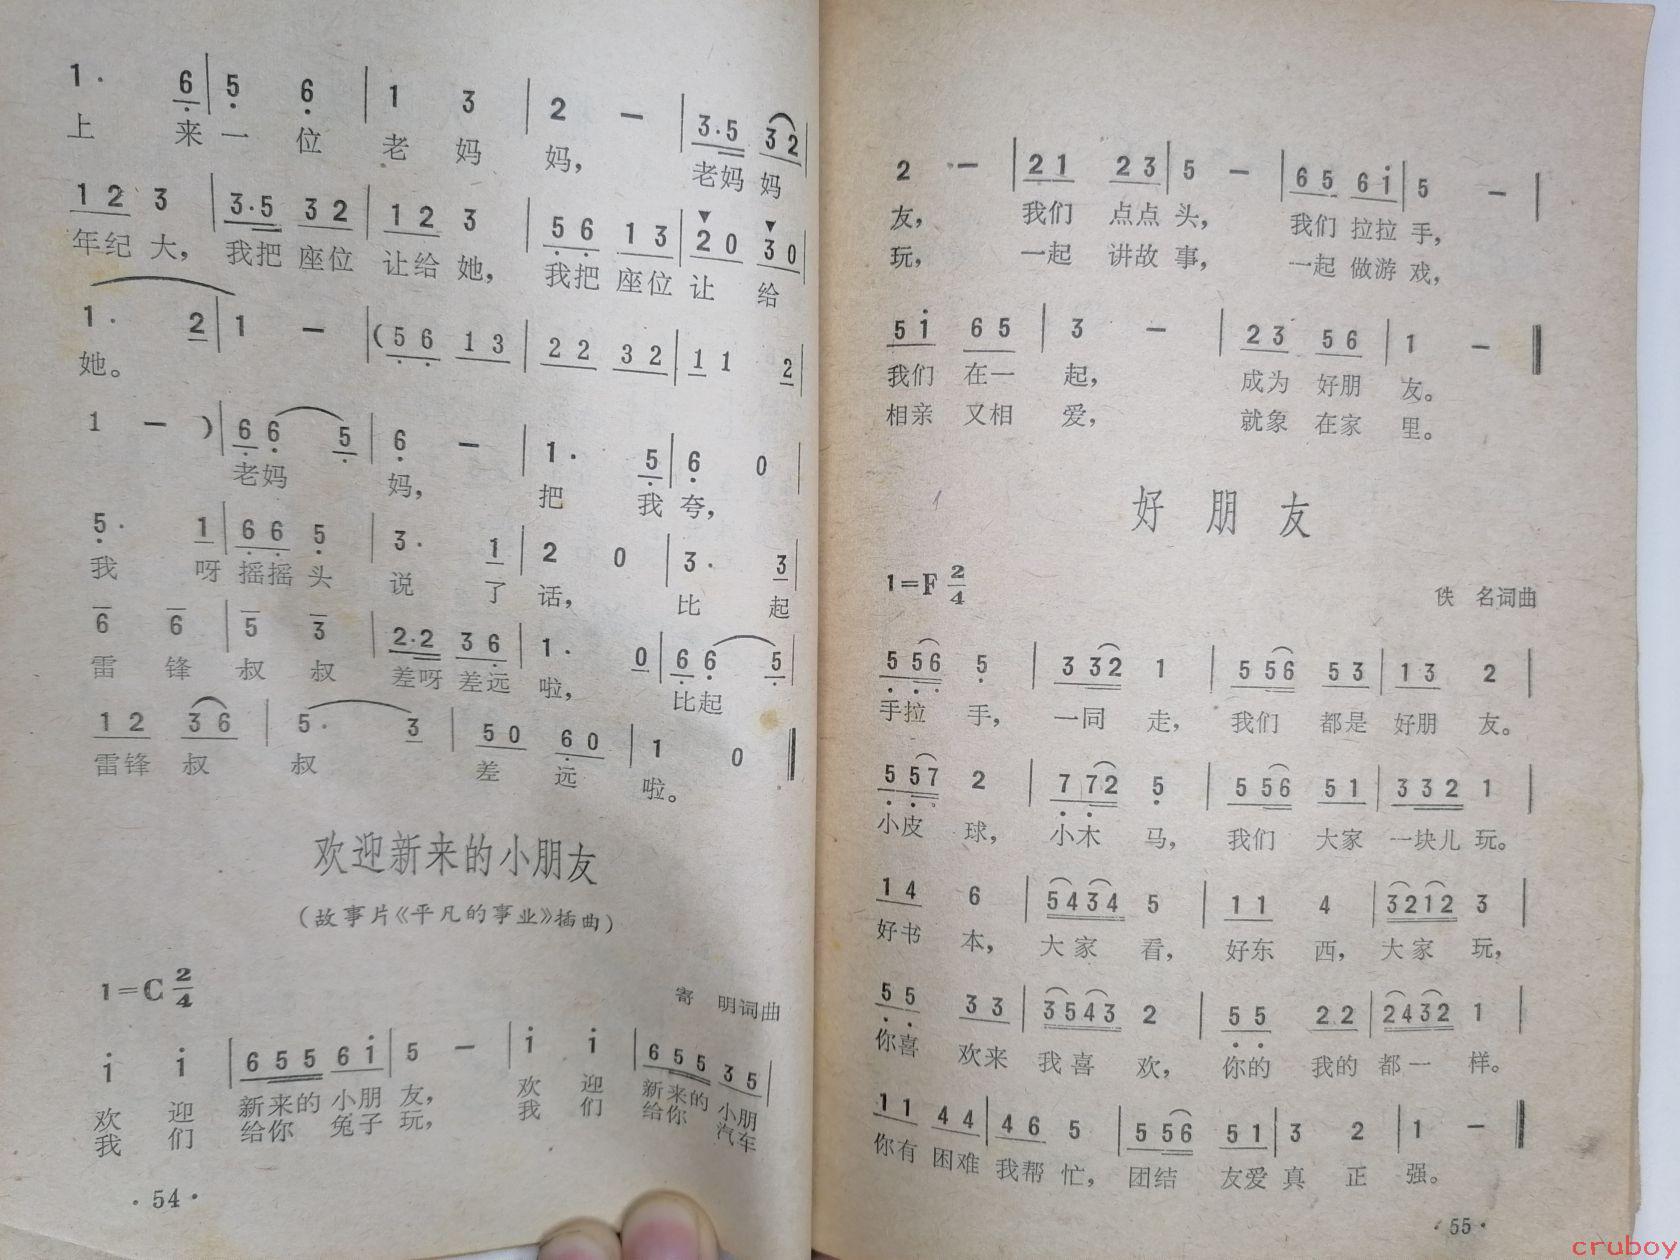 1· 6 | 5 6 | 1 3 | 2 — | 3·5 3 2 |
上 来 一 位 老 妈 妈， 老妈 妈
1 2 3 | 3·5 3 2 | 1 2 3 | 5 6 1 3 | 2 0 3 0 |
年纪 大， 我把 座位 让给 她， 我把 座位 让 给
1· 2 | 1 — | (5 6 1 3 | 2 2 3 2 | 1 1 2 |
她。
1 — ) | 6 6 5 | 6 — | 1· 5 | 6 0 |
老妈 妈， 把 我 夸，
5· 1 | 6 6 5 | 3· 1 | 2 0 | 3· 3 |
我 呀 摇摇 头 说 了 话， 比 起
6 6 | 5 3 | 2·2 3 6 | 1· 0 | 6 6 5 |
雷 锋 叔 叔 差呀 差远 啦， 比起
1 2 3 6 | 5· 3 | 5 0 6 0 | 1 0 ‖
雷锋 叔 叔 差 远 啦。
欢迎新来的小朋友
（故事片《平凡的事业》插曲）
1=C 2/4
寄 明词曲
i i | 6 5 5 6 i | 5 — | i i | 6 5 5 3 5 |
欢 迎 新来的 小朋 友， 欢 迎 新来的 小朋
我 们 给你 兔子 玩， 我 们 给你 汽车
·54·
2 — | 2 1 2 3 | 5 — | 6 5 6 i | 5 — |
友， 我们 点点 头， 我们 拉拉 手，
玩， 一起 讲故 事， 一起 做游 戏，
5 i 6 5 | 3 — | 2 3 5 6 | 1 — ‖
我们 在一 起， 成为 好朋 友。
相亲 又相 爱， 就象 在家 里。
好朋友
1=F 2/4
佚 名词曲
5 5 6 5 | 3 3 2 1 | 5 5 6 5 3 | 1 3 2 |
手拉 手， 一同 走， 我们 都是 好朋 友。
5 5 7 2 | 7 7 2 5 | 5 5 6 5 1 | 3 3 2 1 |
小皮 球， 小木 马， 我们 大家 一块儿 玩。
1 4 6 | 5 4 3 4 5 | 1 1 4 | 3 2 1 2 3 |
好书 本， 大家 看， 好东 西， 大家 玩，
5 5 3 3 | 3 5 4 3 2 | 5 5 2 2 | 2 4 3 2 1 |
你喜 欢来 我喜 欢， 你的 我的 都一 样。
1 1 4 4 | 4 6 5 | 5 5 6 5 1 | 3 2 | 1 — ‖
你有 困难 我帮 忙， 团结 友爱 真 正 强。
·55·
cruboy